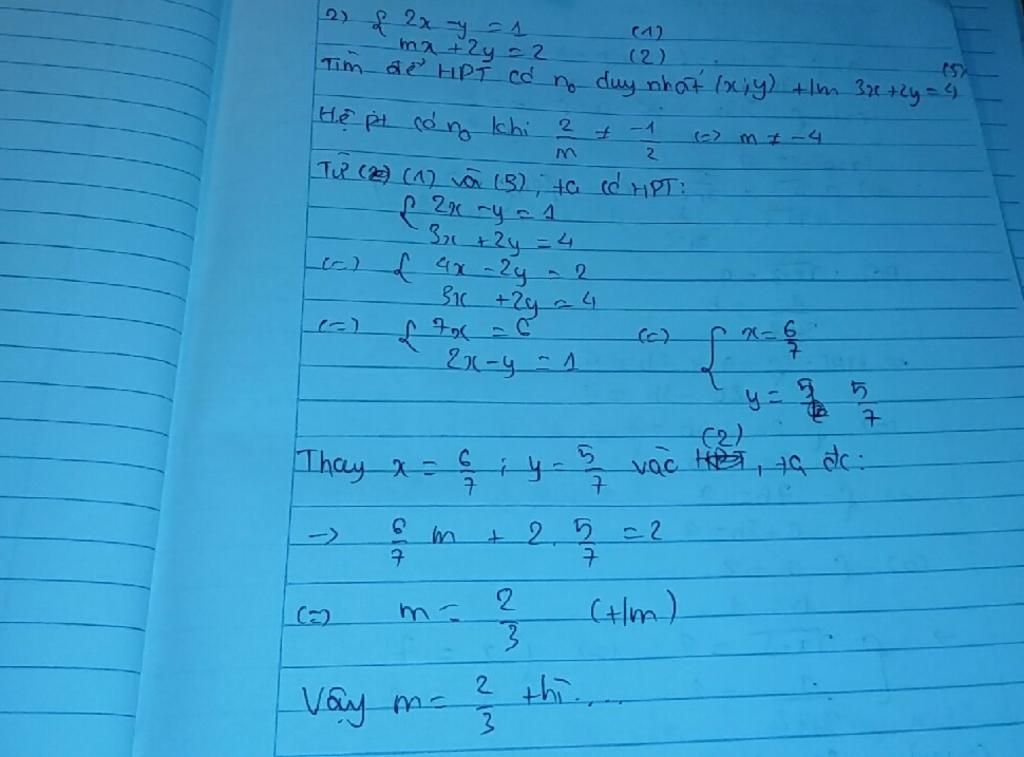 2) { 2x - y = 1 (1)
mx + 2y = 2 (2)
Tìm để HPT có n₀ duy nhất (x;y) t/m 3x + 2y = 4 (3)
Hệ pt có n₀ khi 2/m ≠ -1/2 (=) m ≠ -4
Từ (1) và (3), ta có HPT:
{ 2x - y = 1
3x + 2y = 4
(=) { 4x - 2y = 2
3x + 2y = 4
(=) { 7x = 6 (=) { x = 6/7
2x - y = 1
y = 5/7
Thay x = 6/7 ; y = 5/7 vào (2), ta đc:
-> 6/7 m + 2. 5/7 = 2
(=) m = 2/3 (t/m)
Vậy m = 2/3 thì....